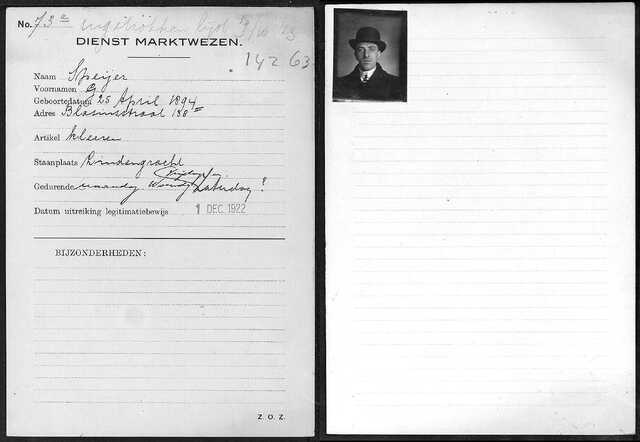 No. 73ª ingetrokken
DIENST MARKTWEZEN.
142 63
Naam Speijer
Voornamen G.
Geboortedatum 25 April 1894
Adres Blasiusstraat 138
Artikel kleeren
Staanplaats Lindengracht
Gedurende maandag Zaterdag
Datum uitreiking legitimatiebewijs 1 DEC. 1922
BIJZONDERHEDEN:
Z. O. Z.